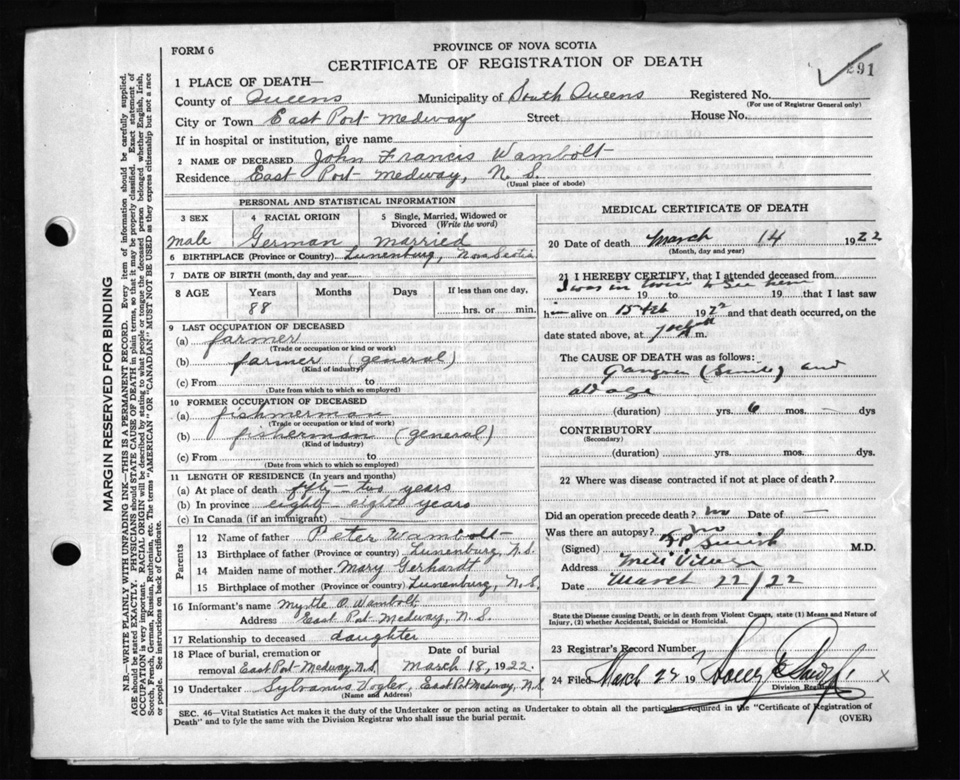 FORM 6
PROVINCE OF NOVA SCOTIA
CERTIFICATE OF REGISTRATION OF DEATH
291
1 PLACE OF DEATH—
County of Queens Municipality of South Queens Registered No.
(For use of Registrar General only)
City or Town East Port Medway Street House No.
If in hospital or institution, give name
2 NAME OF DECEASED John Francis Wambolt
Residence East Port Medway, N. S.
(Usual place of abode)
PERSONAL AND STATISTICAL INFORMATION
3 SEX 4 RACIAL ORIGIN 5 Single, Married, Widowed or Divorced (Write the word)
male German married
6 BIRTHPLACE (Province or Country) Lunenburg, Nova Scotia
7 DATE OF BIRTH (month, day and year)
8 AGE Years Months Days If less than one day,
88 hrs. or min.
9 LAST OCCUPATION OF DECEASED
(a) farmer
(Trade or occupation or kind or work)
(b) farmer (general)
(Kind of industry)
(c) From to
(Date from which to which so employed)
10 FORMER OCCUPATION OF DECEASED
(a) fishmerman
(Trade or occupation or kind of work)
(b) fisherman (general)
(Kind of industry)
(c) From to
(Date from which to which so employed)
11 LENGTH OF RESIDENCE (In years and months)
(a) At place of death fifty-two years
(b) In province eighty-eight years
(c) In Canada (if an immigrant)
Parents
12 Name of father Peter Wambolt
13 Birthplace of father (Province or country) Lunenburg, N.S.
14 Maiden name of mother Mary Gerhardt
15 Birthplace of mother (Province or country) Lunenburg, N.S.
16 Informant's name Myrtle O. Wambolt
Address East Port Medway, N. S.
17 Relationship to deceased daughter
18 Place of burial, cremation or Date of burial
removal East Port Medway, N.S. March 18, 1922.
19 Undertaker Sylvanus Vogler, East Port Medway, N.S.
(Name and Address)
MEDICAL CERTIFICATE OF DEATH
20 Date of death March 14 1922
(Month, day and year)
21 I HEREBY CERTIFY, that I attended deceased from
I was in twice to see him
19 to 19 that I last saw
him alive on 15 Feb 1922 and that death occurred, on
date stated above, at m.
The CAUSE OF DEATH was as follows:
Gangrene (Senile) and
old age
(duration) yrs. 6 mos. — dys
CONTRIBUTORY
(Secondary)
(duration) yrs. mos. dys.
22 Where was disease contracted if not at place of death?
Did an operation precede death? No Date of —
Was there an autopsy? No
(Signed) M.D.
Address Mill Village
Date March 22/22
State the Disease causing Death, or in death from Violent Causes, state (1) Means and Nature of Injury, (2) whether Accidental, Suicidal or Homicidal.
23 Registrar's Record Number
24 Filed March 27 19
Division Registrar
X
SEC. 46—Vital Statistics Act makes it the duty of the Undertaker or person acting as Undertaker to obtain all the particulars required in the "Certificate of Registration of
Death" and to fyle the same with the Division Registrar who shall issue the burial permit.
(OVER)
MARGIN RESERVED FOR BINDING
N.B.—WRITE PLAINLY WITH UNFADING INK—THIS IS A PERMANENT RECORD. Every item of information should be carefully supplied.
AGE should be stated EXACTLY. PHYSICIANS should STATE CAUSE OF DEATH in plain terms, so that it may be properly classified. Exact statement of
OCCUPATION is very important. RACIAL ORIGIN will be described by stating to what people or tongue the deceased person belonged whether English, Irish,
Scotch, French, German, Russian, Ruthenian, etc. The terms "AMERICAN" or "CANADIAN" MUST NOT BE USED as they express citizenship but not a race
or people. See instructions on back of Certificate.